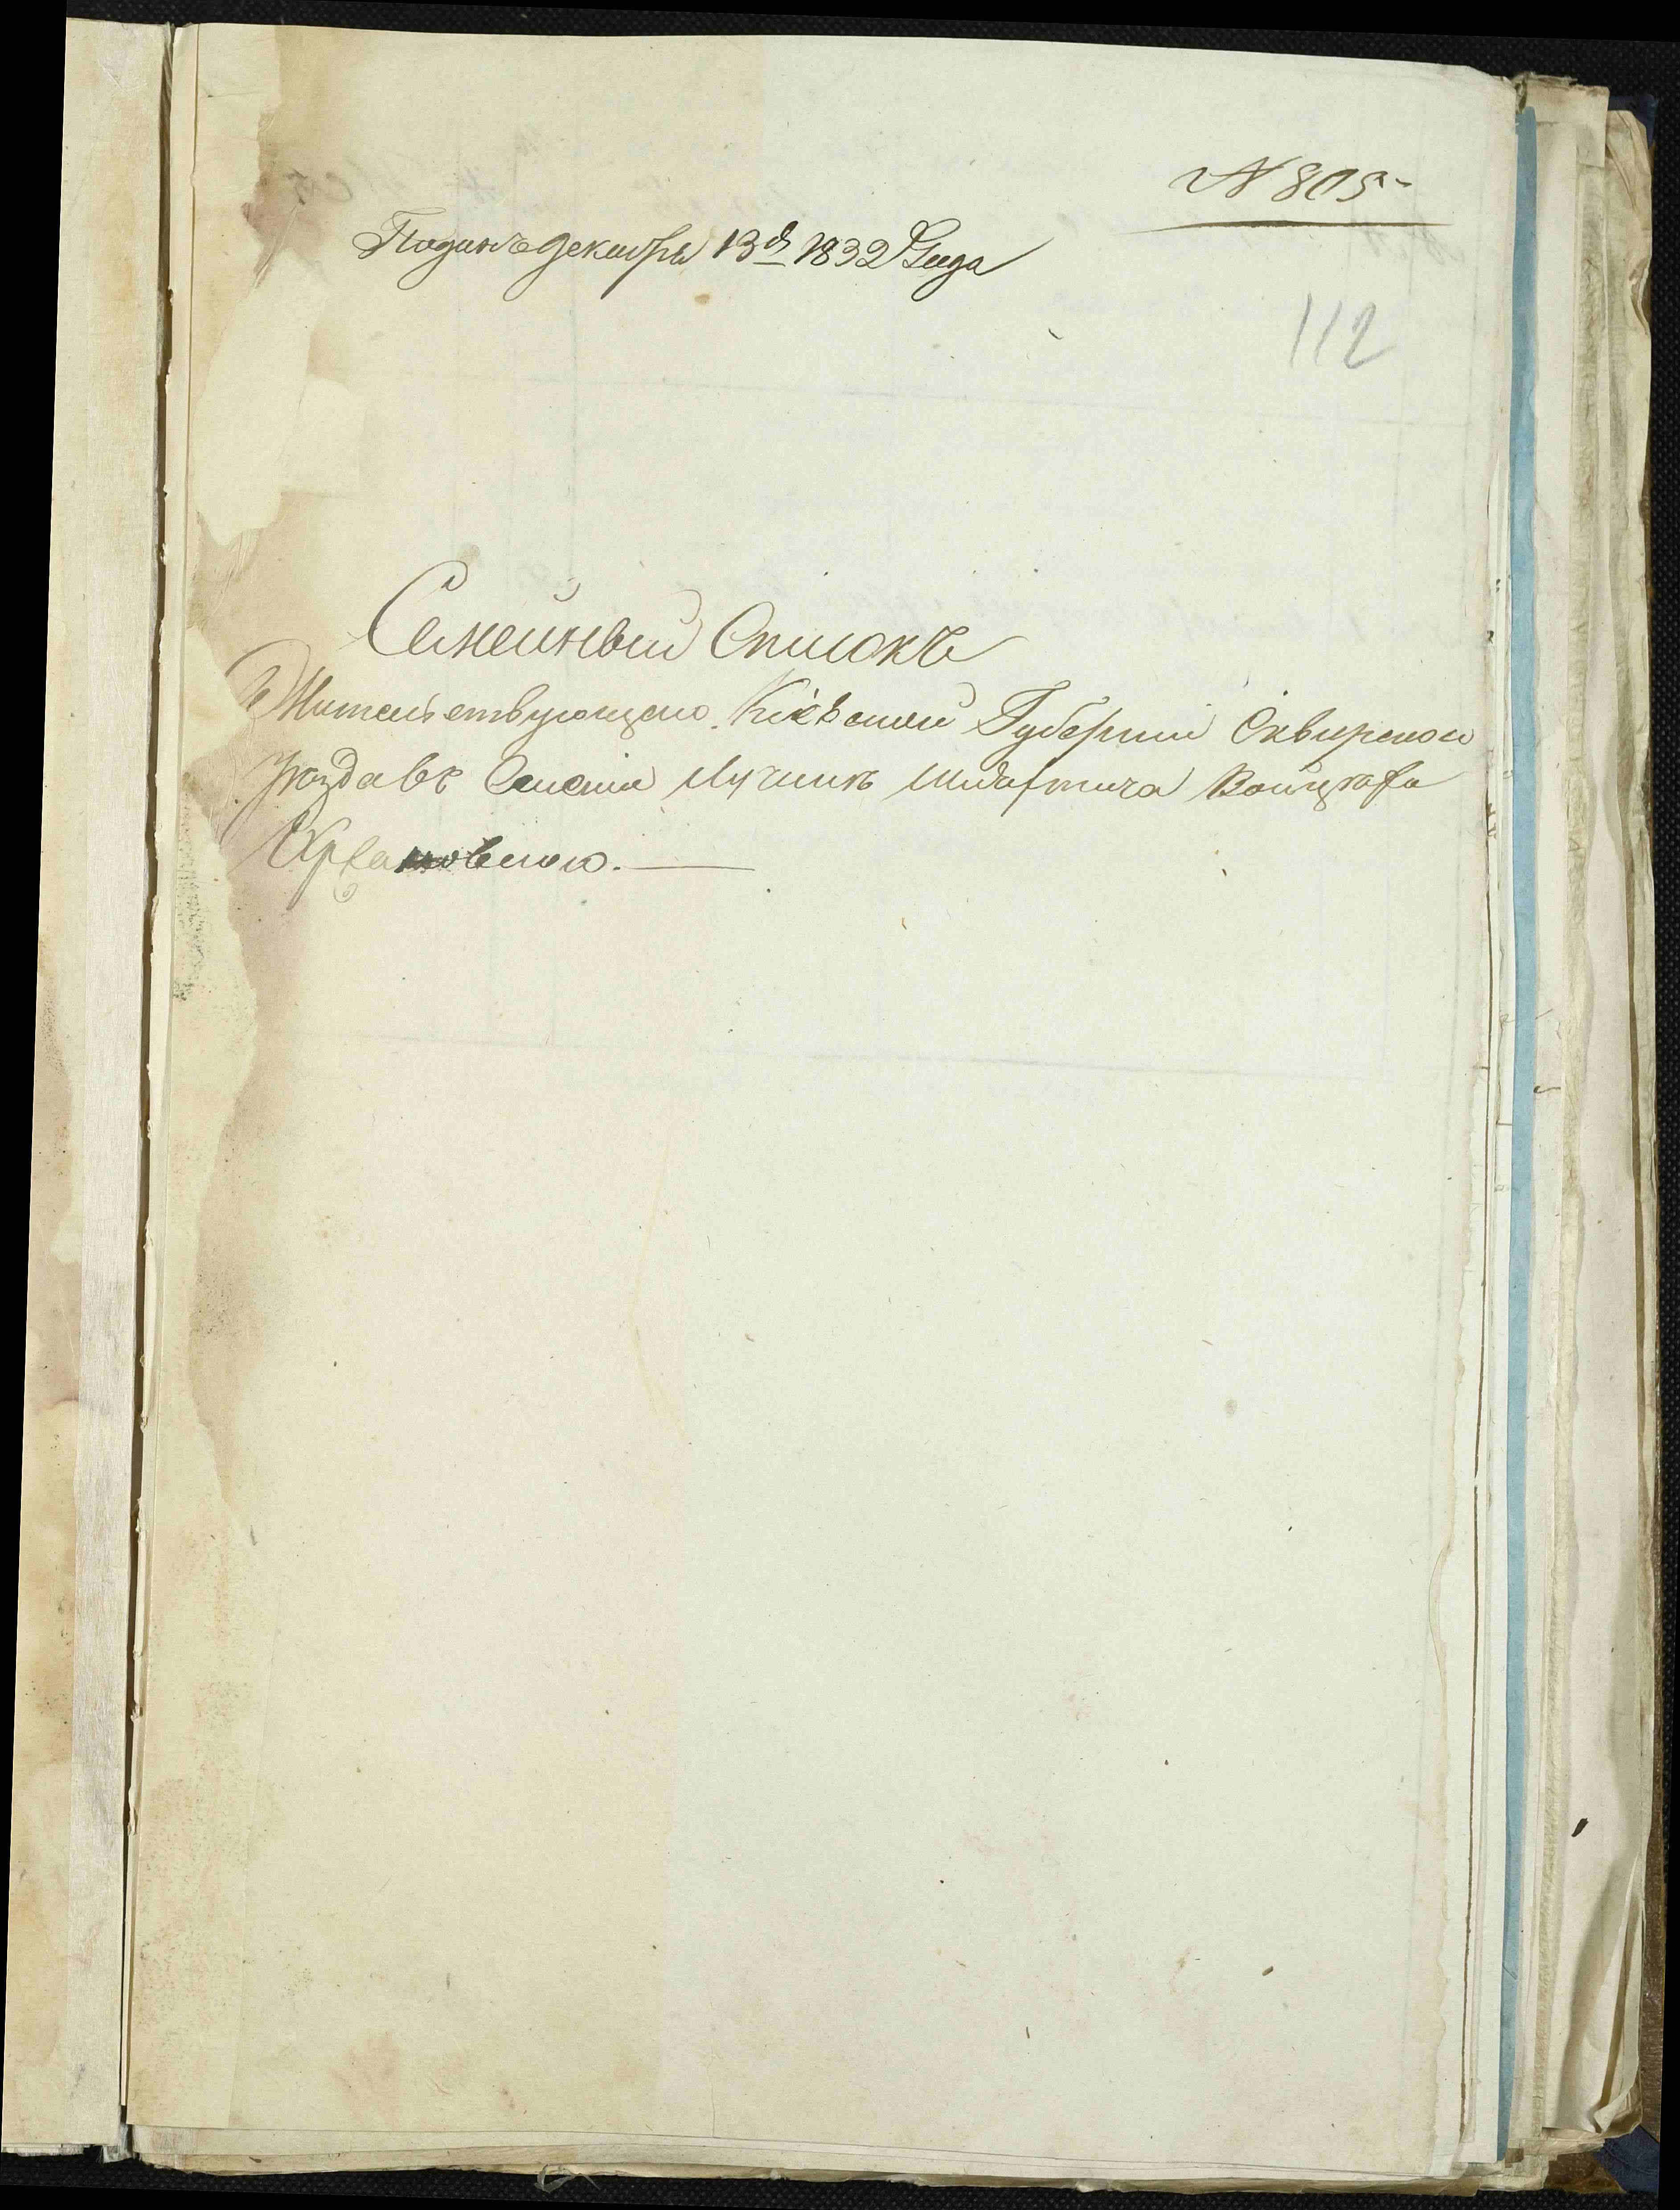 № 805
Поданъ Декабря 13 д 1832 Года
112
Семейный Списокъ
Жительствующаго Кіевской Губерніи Сквирскаго
Уезда въ Селеніи Лучинъ Шляхтича Войцеха